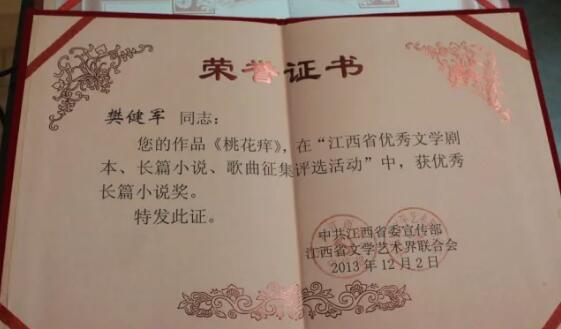 荣誉证书
樊健军 同志:
您的作品《桃花痒》,在“江西省优秀文学剧
本、长篇小说、歌曲征集评选活动”中,获优秀
长篇小说奖。
特发此证。
中共江西省委宣传部
江西省文学艺术界联合会
2013年12月2日